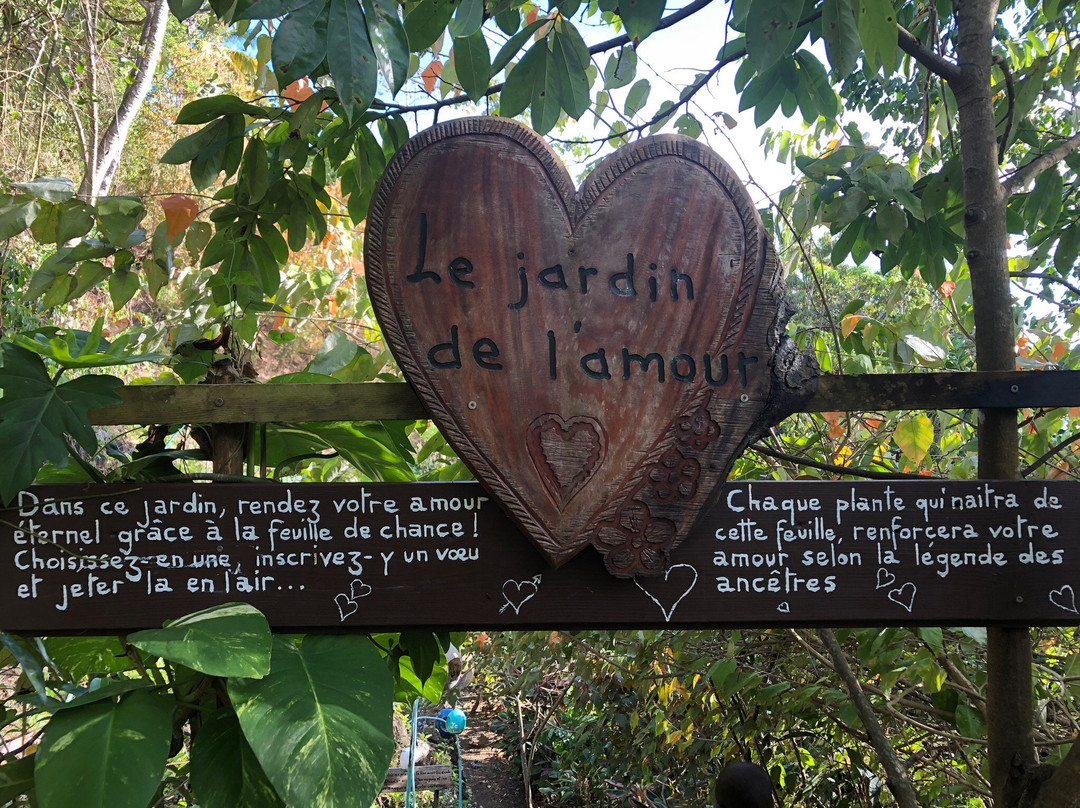 Le jardin
de l'amour
Dans ce jardin, rendez votre amour
éternel grâce à la feuille de chance !
Choisissez-en une, inscrivez-y un vœu
et jeter la en l'air...
Chaque plante qui naitra de
cette feuille, renforcera votre
amour selon la légende des
ancêtres